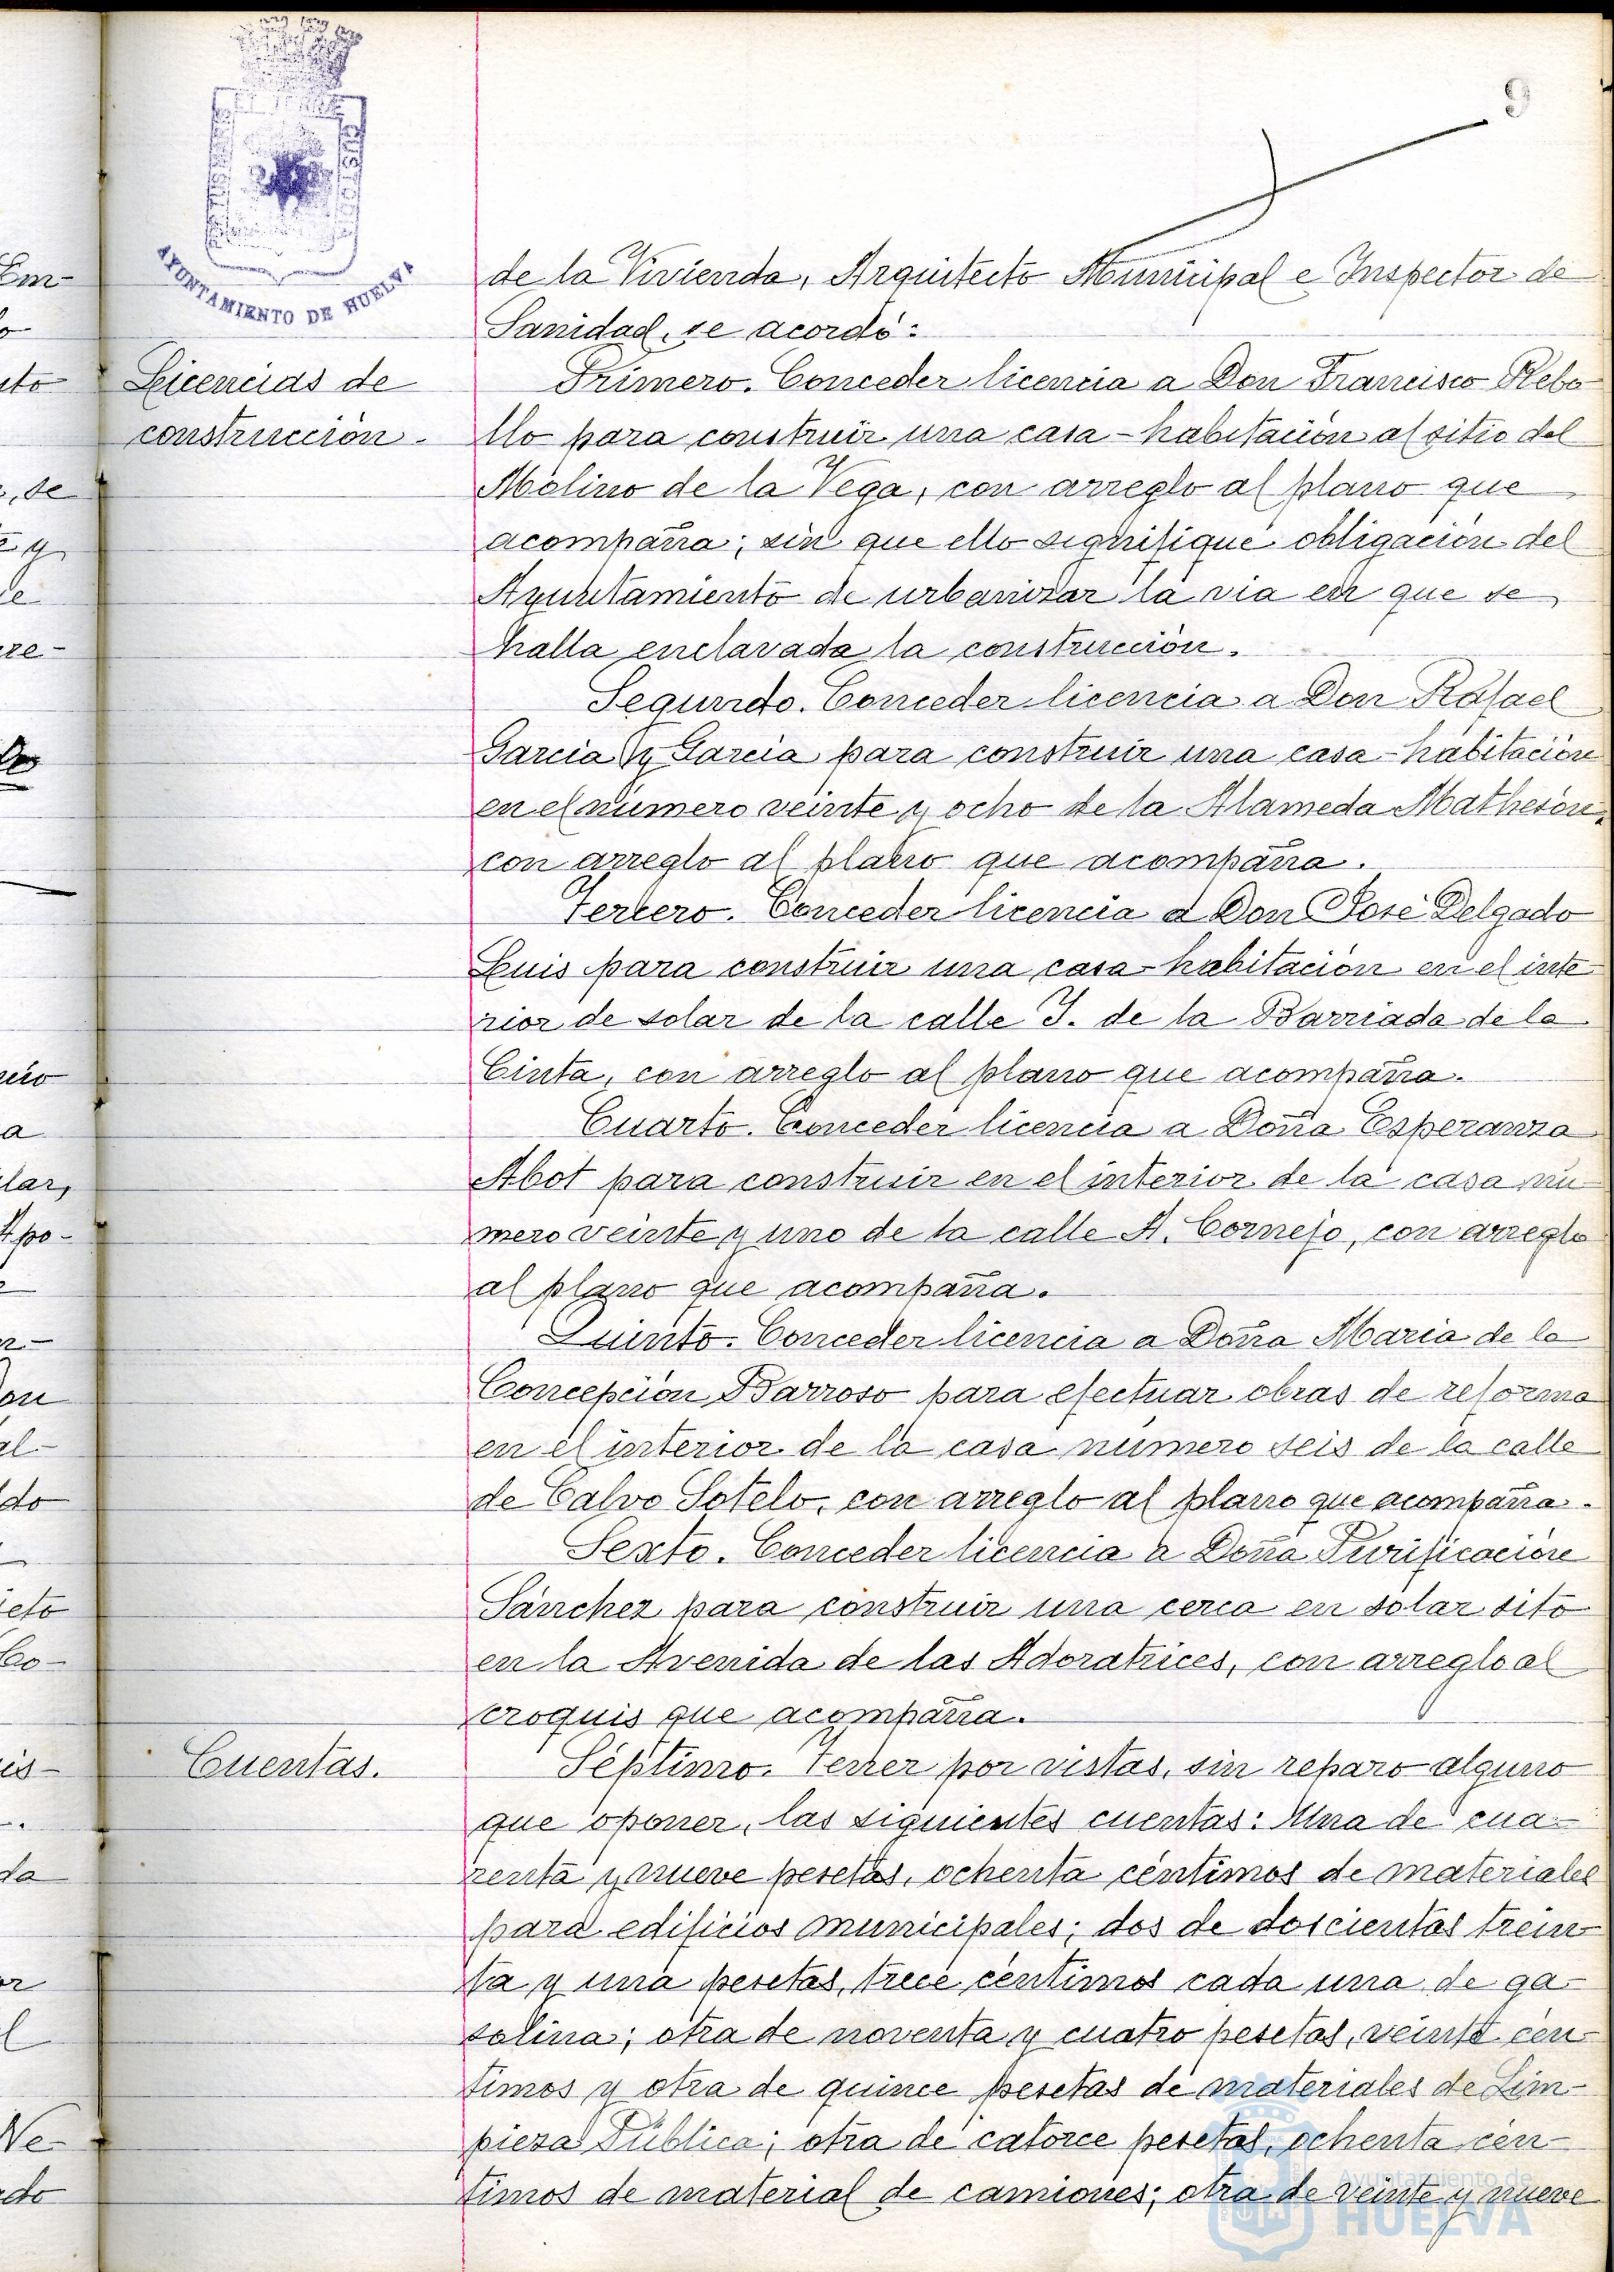 9
PORTUS MARIS ET TERRAE CUSTODIA
AYUNTAMIENTO DE HUELVA
de la Vivienda, Arquitecto Municipal e Inspector de
Sanidad, se acordó:
Licencias de
construcción.
Primero. Conceder licencia a Don Francisco Rebo
llo para construir una casa-habitación al sitio del
Molino de la Vega, con arreglo al plano que
acompaña; sin que ello signifique obligación del
Ayuntamiento de urbanizar la via en que se
halla enclavada la construcción.
Segundo. Conceder licencia a Don Rafael
Garcia y Garcia para construir una casa-habitación
en el número veinte y ocho de la Alameda Mathesón,
con arreglo al plano que acompaña.
Tercero. Conceder licencia a Don José Delgado
Luis para construir una casa-habitación en el inte
rior de solar de la calle J. de la Barriada de la
Cinta, con arreglo al plano que acompaña.
Cuarto. Conceder licencia a Doña Esperanza
Abot para construir en el interior de la casa nú
mero veinte y uno de la calle A. Cornejo, con arreglo
al plano que acompaña.
Quinto. Conceder licencia a Doña Maria de la
Concepción Barroso para efectuar obras de reforma
en el interior de la casa número seis de la calle
de Calvo Sotelo, con arreglo al plano que acompaña.
Sexto. Conceder licencia a Doña Purificación
Sánchez para construir una cerca en solar sito
en la Avenida de las Adoratrices, con arreglo al
croquis que acompaña.
Cuentas.
Séptimo. Tener por vistas, sin reparo alguno
que oponer, las siguientes cuentas: Una de cua-
renta y nueve pesetas, ochenta céntimos de materiales
para edificios municipales; dos de doscientas trein-
ta y una pesetas, trece céntimos cada una de ga-
solina; otra de noventa y cuatro pesetas, veinte cén-
timos y otra de quince pesetas de materiales de Lim-
pieza Pública; otra de catorce pesetas, ochenta cén-
timos de material de camiones; otra de veinte y nueve
Ayuntamiento de
HUELVA